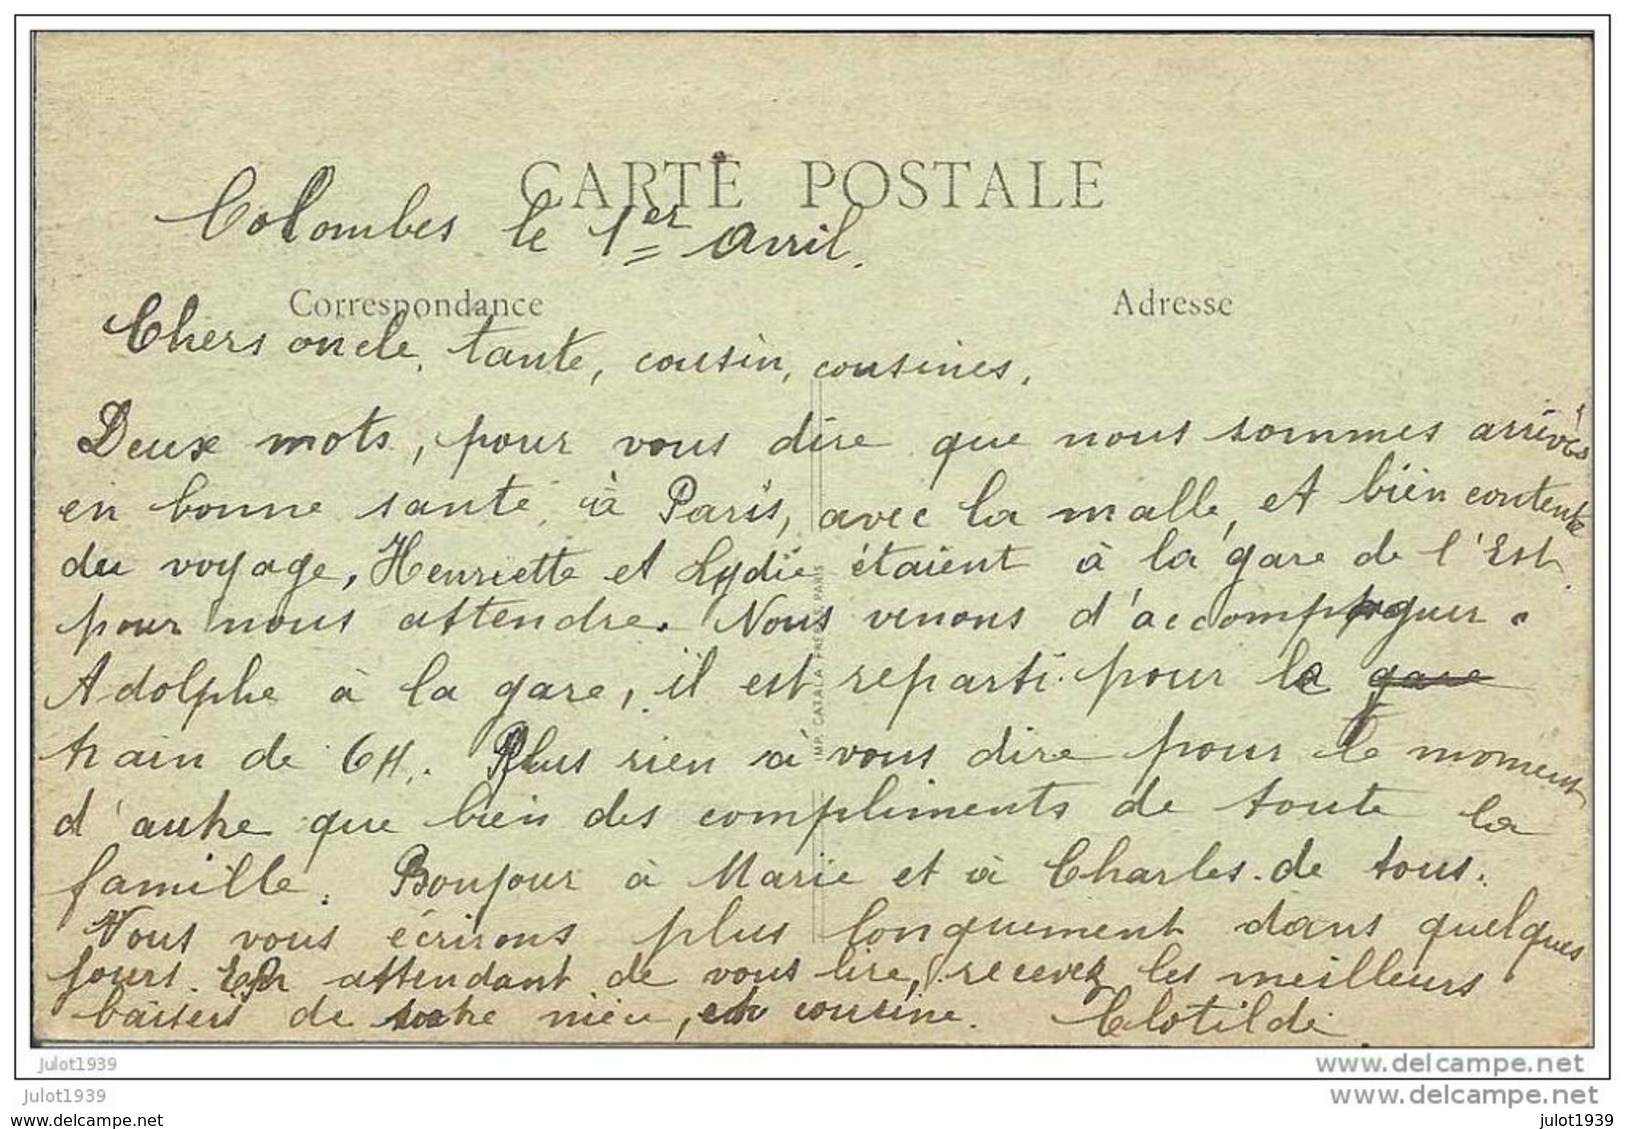 CARTE POSTALE
Colombes le 1er Avril.
Correspondance
Adresse
Chers oncle, tante, cousin, cousines,
Deux mots, pour vous dire que nous sommes arrivés
en bonne santé, à Paris, avec la malle, et bien contente
du voyage, Henriette et Lydie étaient à la gare de l'Est
pour nous attendre. Nous venons d'accompaguer
Adolphe à la gare, il est reparti pour le gare
train de 6H. Plus rien à vous dire pour le moment
d'autre que bien des compliments de toute la
famille. Bonjour à Marie et à Charles de tous.
Nous vous écrirons plus longuement dans quelques
jours. En attendant de vous lire, recevez les meilleurs
baisers de votre nièce, et cousine. Clotilde
IMP. CATALA FRÈRES PARIS
julot1939
www.delcampe.net
julot1939
www.delcampe.net
julot1939
julot1939